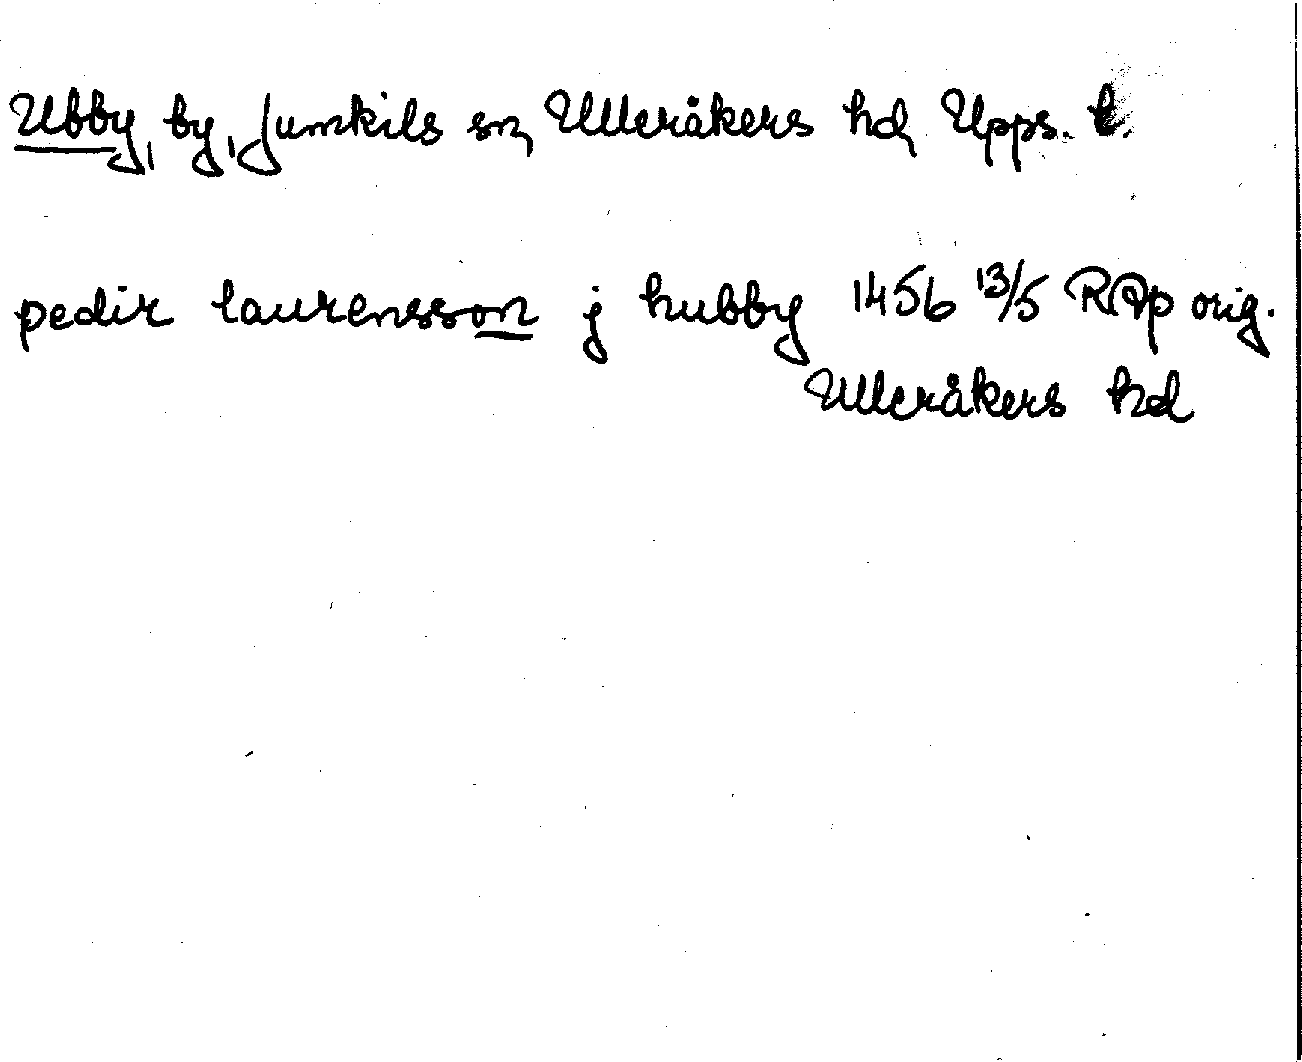 Ubby, by, Jumkils sn, Ulleråkers hd, Upps. l.
pedir laurensson j hubby 1456 13/5 RAp orig.
Ulleråkers hd